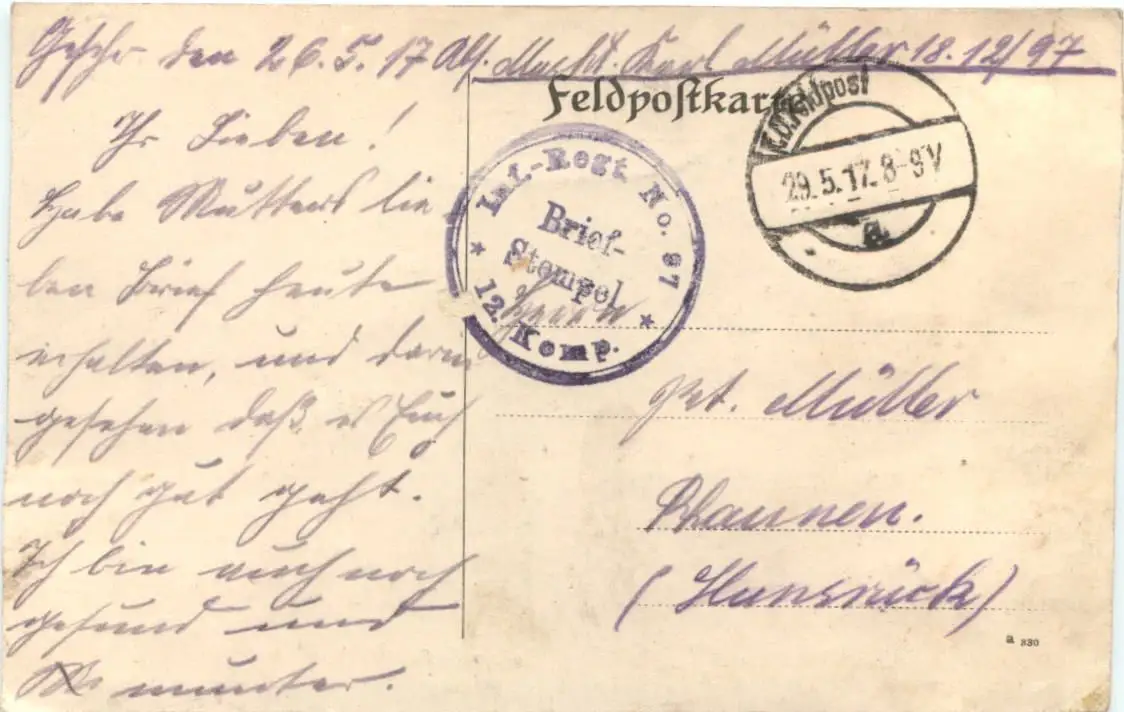 den 26.5.17 Abs. Karl Müller 18. 12/97
Feldpostkarte
K.D.Feldpost
29.5.17. 8-9V
a
Inf.-Regt. No. 87
Brief-
Stempel
12. Komp.
Ihr Lieben!
Habe Mutters lie
ben Brief heute
erhalten, und darin
gesehen daß es Euch
noch gut geht.
Ich bin auch noch
gesund und
munter.
Herrn
Pet. Müller
Rhaunen.
(Hunsrück)
a 330